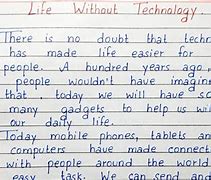 Life Without Technology.
There is no doubt that techn
has made life easier for
people. A hundred years ago,
people wouldn't have imagin
that today we will have so
many gadgets to help us wi
our daily life.
Today mobile phones, tablets an
computers have made connect
with people around the world
easy task. We can send and